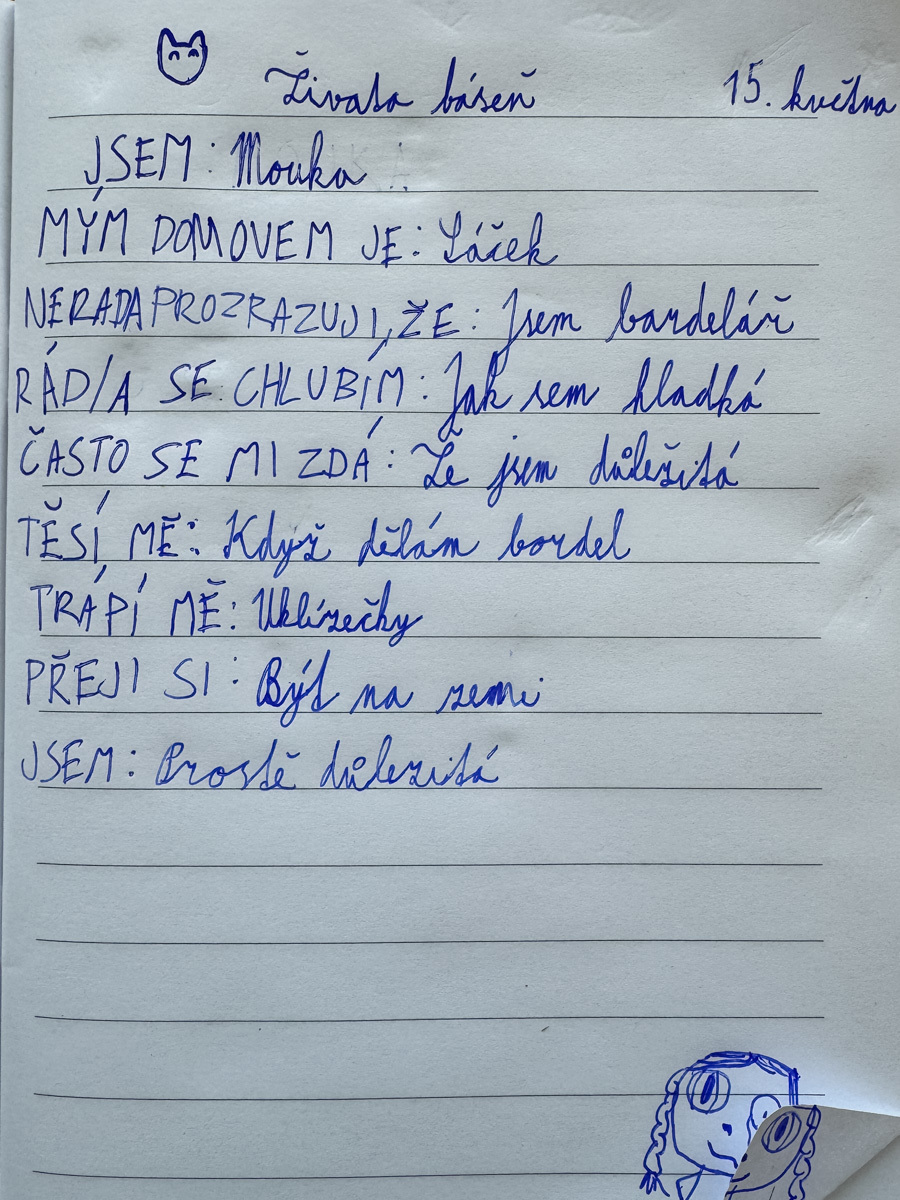 Živata báseň 15. května
JSEM: Mouka
MÝM DOMOVEM JE: Sáček
NERADA PROZRAZUJI, ŽE: Jsem bardelář
RÁD/A SE CHLUBÍM: Jak sem hladká
ČASTO SE MI ZDÁ: Že jsem důležitá
TĚŠÍ MĚ: Když dělám bordel
TRÁPÍ MĚ: Uklízečky
PŘEJI SI: Být na zemi
JSEM: Prostě důlezitá